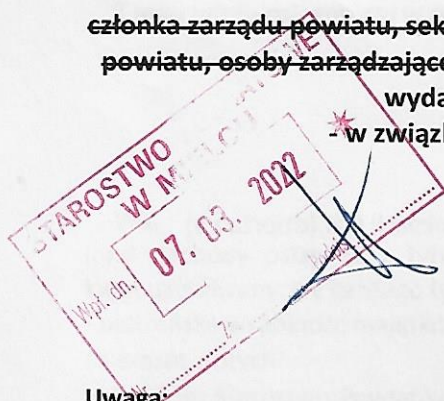 członka zarządu powiatu, sek
powiatu, osoby zarządzające
wyda
- w związ
STAROSTWO
W
07. 03. 2022
Wpł. dn.
Podpis
Uwaga: